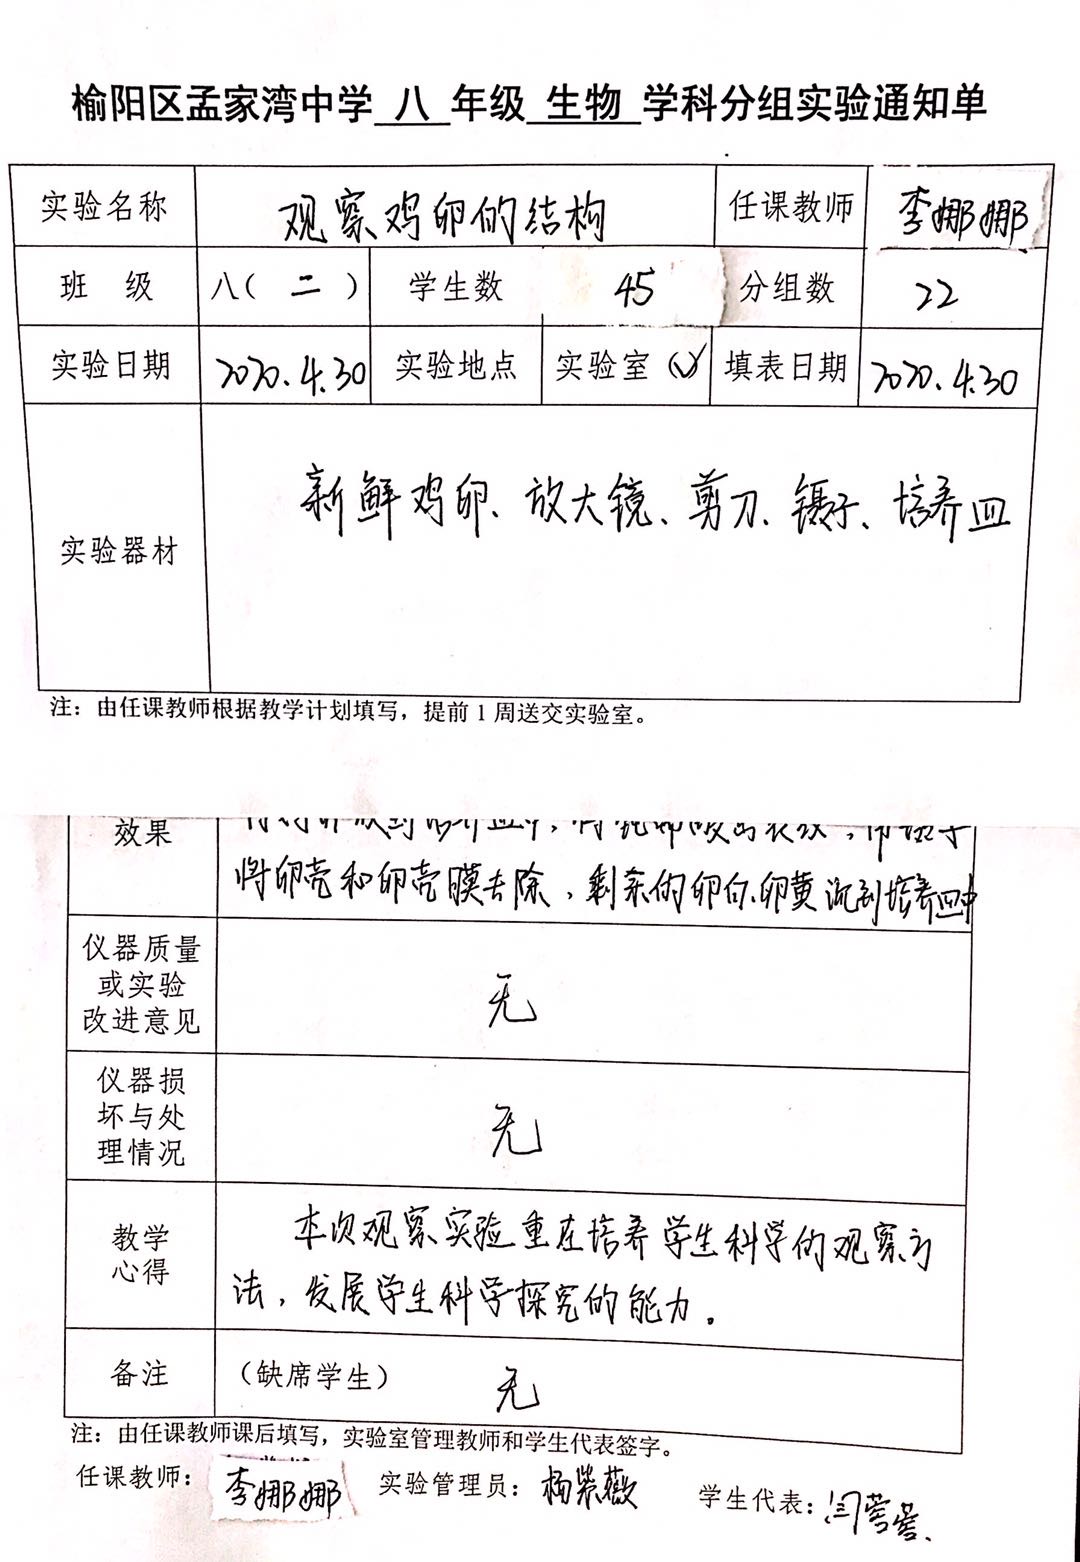 榆阳区孟家湾中学 八 年级 生物 学科分组实验通知单
实验名称 观察鸡卵的结构 任课教师 李娜娜
班 级 八（二） 学生数 45 分组数 22
实验日期 2020.4.30 实验地点 实验室（√） 填表日期 2020.4.30
实验器材 新鲜鸡卵、放大镜、剪刀、镊子、培养皿
注：由任课教师根据教学计划填写，提前1周送交实验室。
效果
将卵壳和卵壳膜去除，剩余的卵白、卵黄流到培养皿中
仪器质量
或实验
改进意见
无
仪器损
坏与处
理情况
无
教学
心得
本次观察实验重在培养学生科学的观察方
法，发展学生科学探究的能力。
备注 （缺席学生） 无
注：由任课教师课后填写，实验室管理教师和学生代表签字。
任课教师：李娜娜 实验管理员：杨紫薇 学生代表：闫